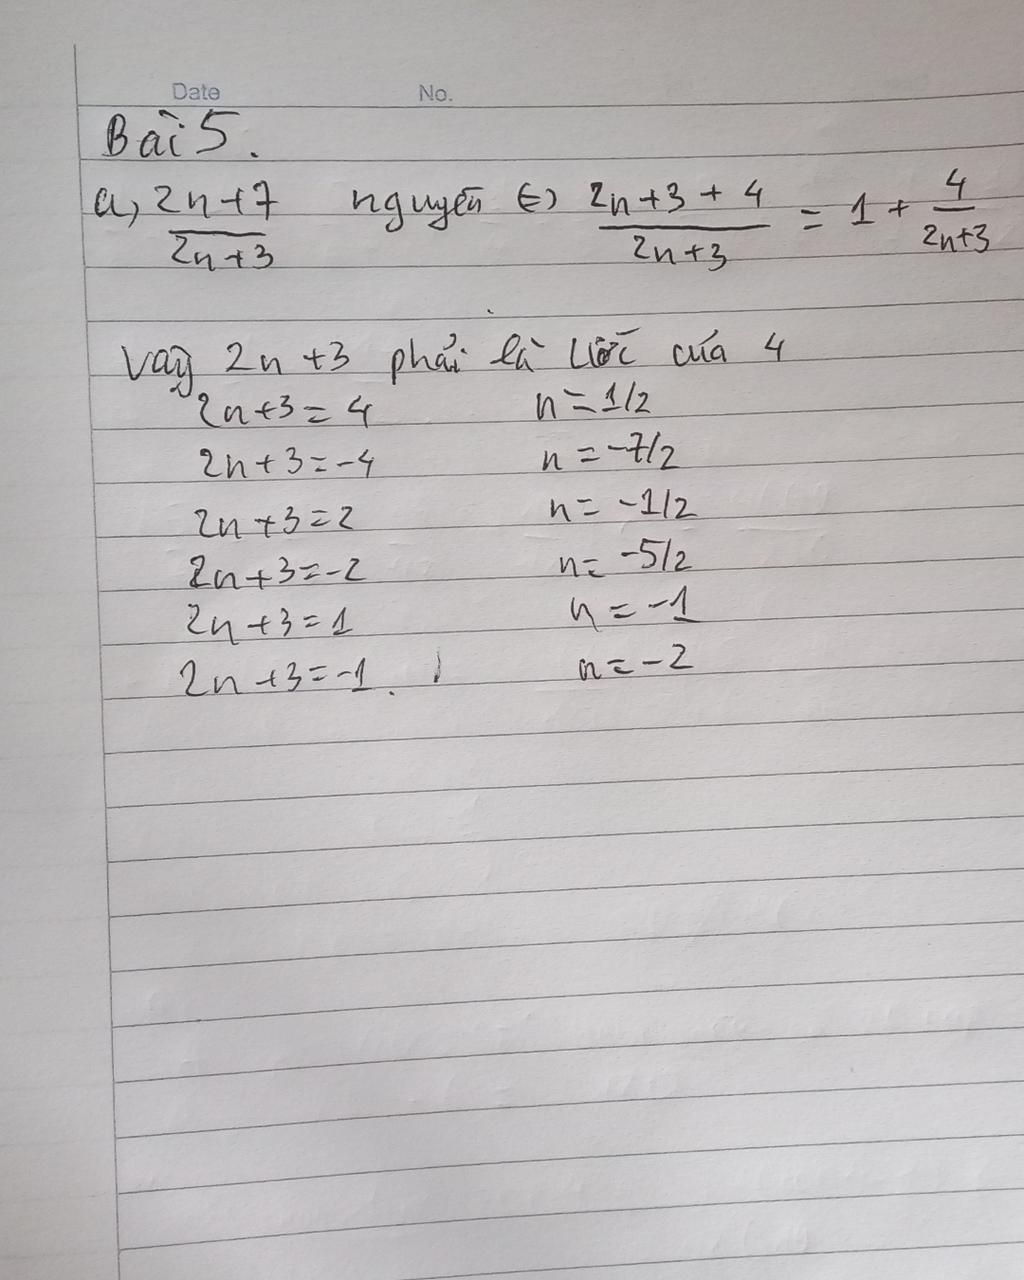 Date No.
Bài 5.
a, (2n+7)/(2n+3) nguyên (=) (2n+3+4)/(2n+3) = 1 + 4/(2n+3)
Vậy 2n+3 phải là ước của 4
2n+3=4 n=1/2
2n+3=-4 n=-7/2
2n+3=2 n=-1/2
2n+3=-2 n=-5/2
2n+3=1 n=-1
2n+3=-1. n=-2